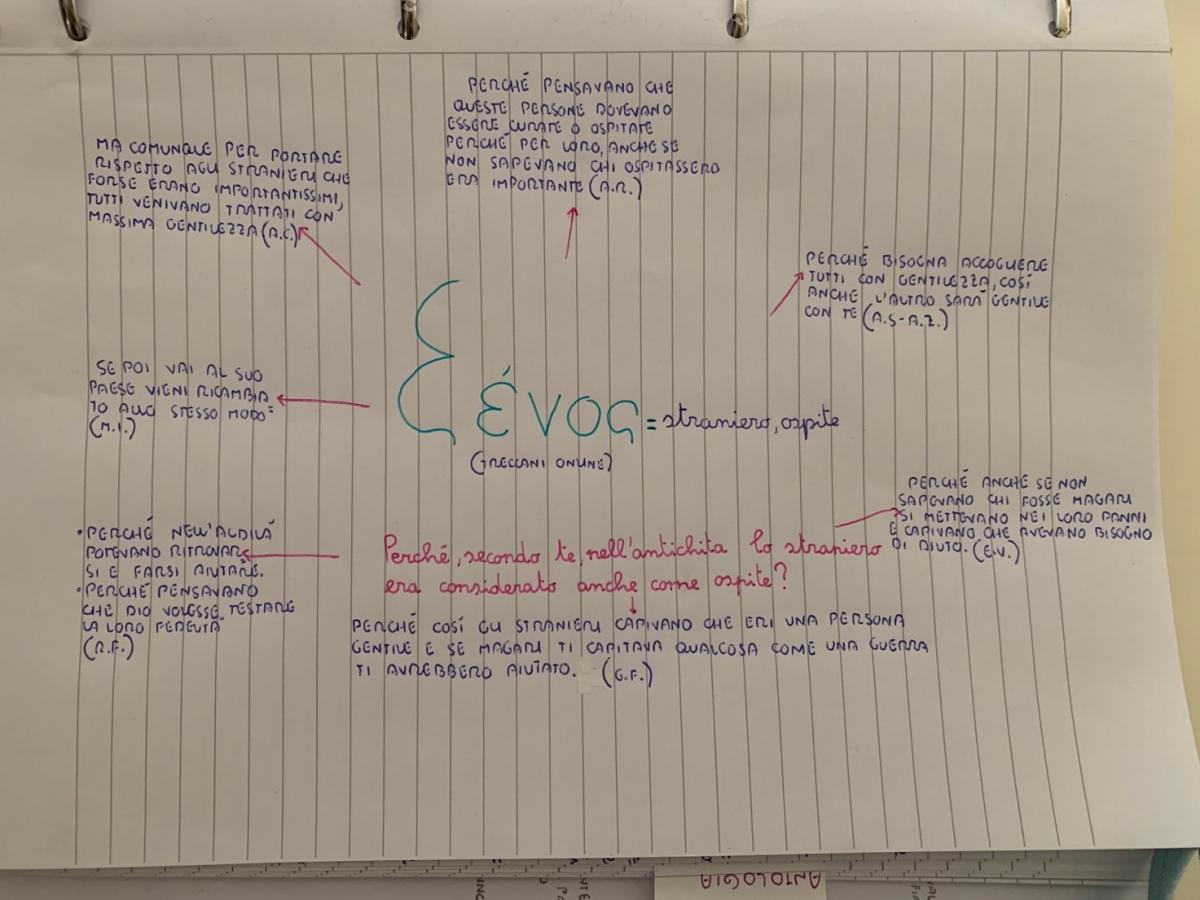 PERCHÉ PENSAVANO CHE
QUESTE PERSONE DOVEVANO
ESSERE CURATE O OSPITATE
PERCHÉ PER LORO, ANCHE SE
NON SAPEVANO CHI OSPITASSERO
ERA IMPORTANTE (A.R.)
MA COMUNQUE PER PORTARE
RISPETTO AGLI STRANIERI CHE
FORSE ERANO IMPORTANTISSIMI,
TUTTI VENIVANO TRATTATI CON
MASSIMA GENTILEZZA (A.C.)
PERCHÉ BISOGNA ACCOGLIERE
TUTTI CON GENTILEZZA, COSÍ
ANCHE L'ALTRO SARÁ GENTILE
CON TE (A.S-A.Z.)
SE POI VAI AL SUO
PAESE VIENI RICAMBIA
TO ALLO STESSO MODO=
(M.I.)
Ξένος = straniero, ospite
(TRECCANI ONLINE)
PERCHÉ ANCHE SE NON
SAPEVANO CHI FOSSE MAGARI
SI METTEVANO NEI LORO PANNI
E CAPIVANO CHE AVEVANO BISOGNO
DI AIUTO. (E.V.)
• PERCHÉ NELL'ALDILÁ
POTEVANO RITROVAR
SI E FARSI AIUTARE.
• PERCHÉ PENSAVANO
CHE DIO VOLESSE TESTARE
LA LORO FEDELTÁ
(R.F.)
Perché, secondo te, nell'antichita lo straniero
era considerato anche come ospite?
PERCHÉ COSÍ GLI STRANIERI CAPIVANO CHE ERI UNA PERSONA
GENTILE E SE MAGARI TI CAPITAVA QUALCOSA COME UNA GUERRA
TI AVREBBERO AIUTATO. (G.F.)
ANTOLOGIA